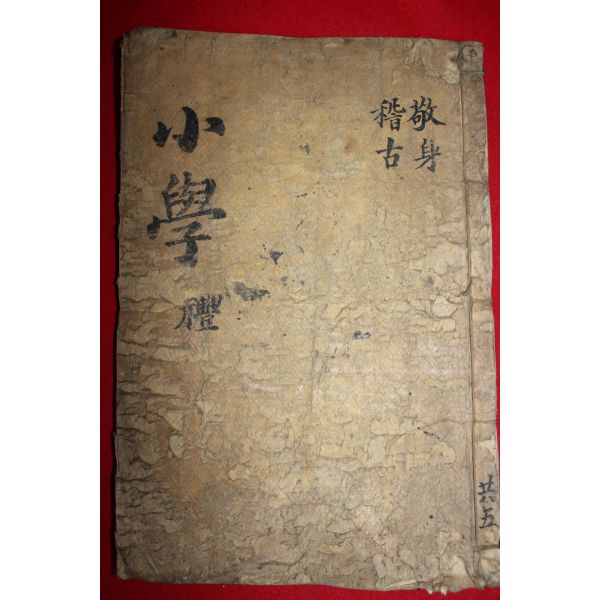 敬身
稽古
小學 禮
共五